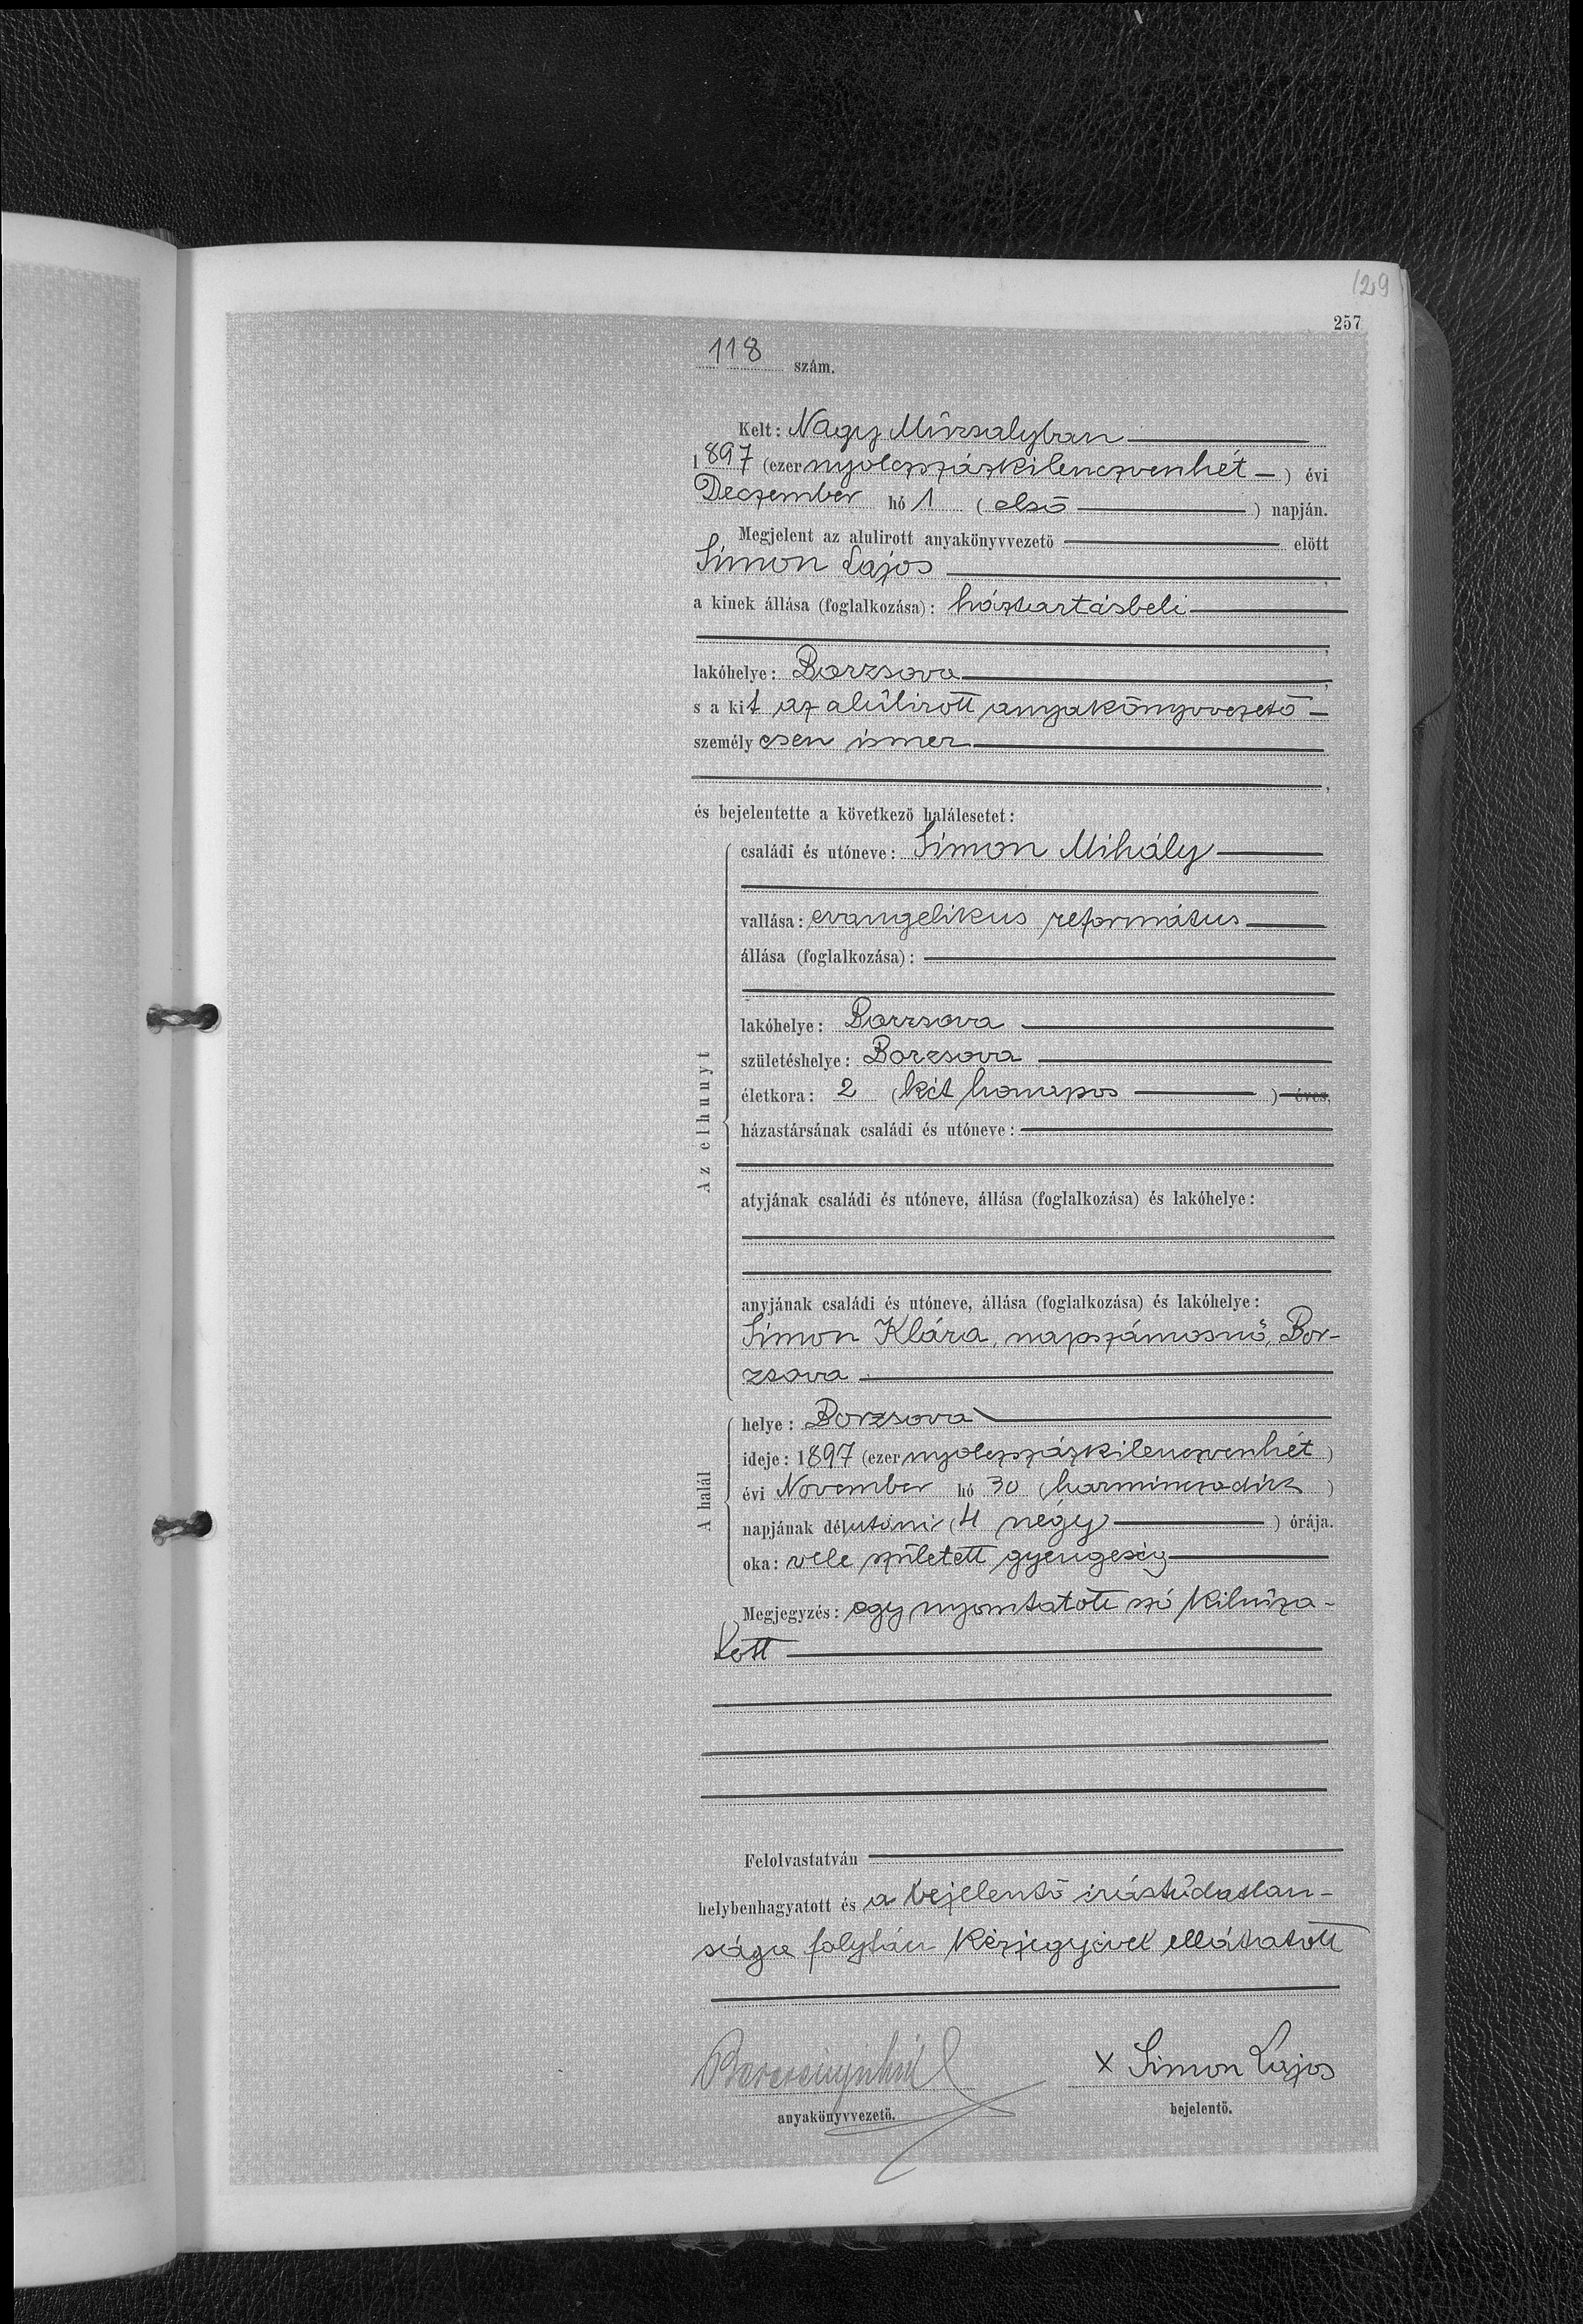 129
257
118 szám.
Kelt: Nagy Múzsalyban
1897 (ezer nyolczszázkilenczvenhét) évi
Deczember hó 1 (első) napján.
Megjelent az alulirott anyakönyvvezető előtt
Simon Lajos
a kinek állása (foglalkozása): háztartásbeli
lakóhelye: Borzsova
s a kit az alúlirott anyakönyvvezető
személyesen ismer
és bejelentette a következő halálesetet:
Az elhunyt
családi és utóneve: Simon Mihály
vallása: evangelikus református
állása (foglalkozása):
lakóhelye: Borzsova
születéshelye: Borzsova
életkora: 2 (két honapos) éves,
házastársának családi és utóneve:
atyjának családi és utóneve, állása (foglalkozása) és lakóhelye:
anyjának családi és utóneve, állása (foglalkozása) és lakóhelye:
Simon Klára, napszámosnő, Bor-
zsova
A halál
helye: Borzsova
ideje: 1897 (ezer nyolczszázkilenczvenhét)
évi November hó 30 (harminczadik)
napjának délutáni (4 négy) órája.
oka: vele született gyengeség
Megjegyzés: egy nyomtatott szó kihúza-
tott
Felolvastatván
helybenhagyatott és a bejelentő irástúdatlan-
sága folytán kézjegyével elláttatott
x Simon Lajos
anyakönyvvezető.
bejelentő.